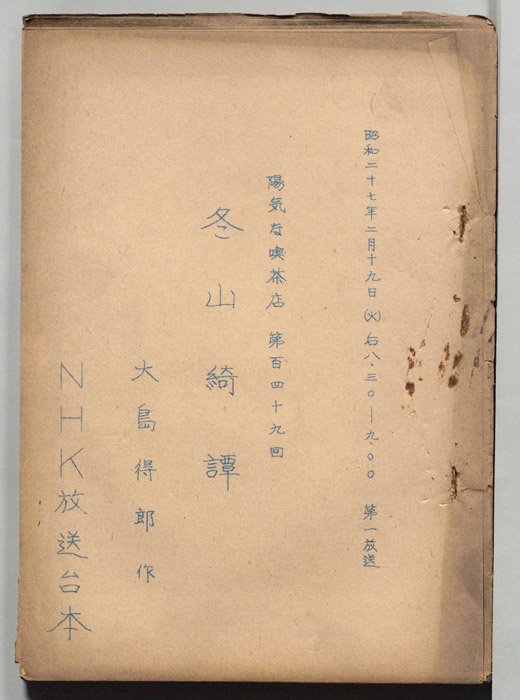 昭和二十七年二月十九日(火)右八.三〇―九.〇〇 第一放送
陽気な喫茶店 第百四十九回
冬山綺譚
大島得郎作
NHK放送台本